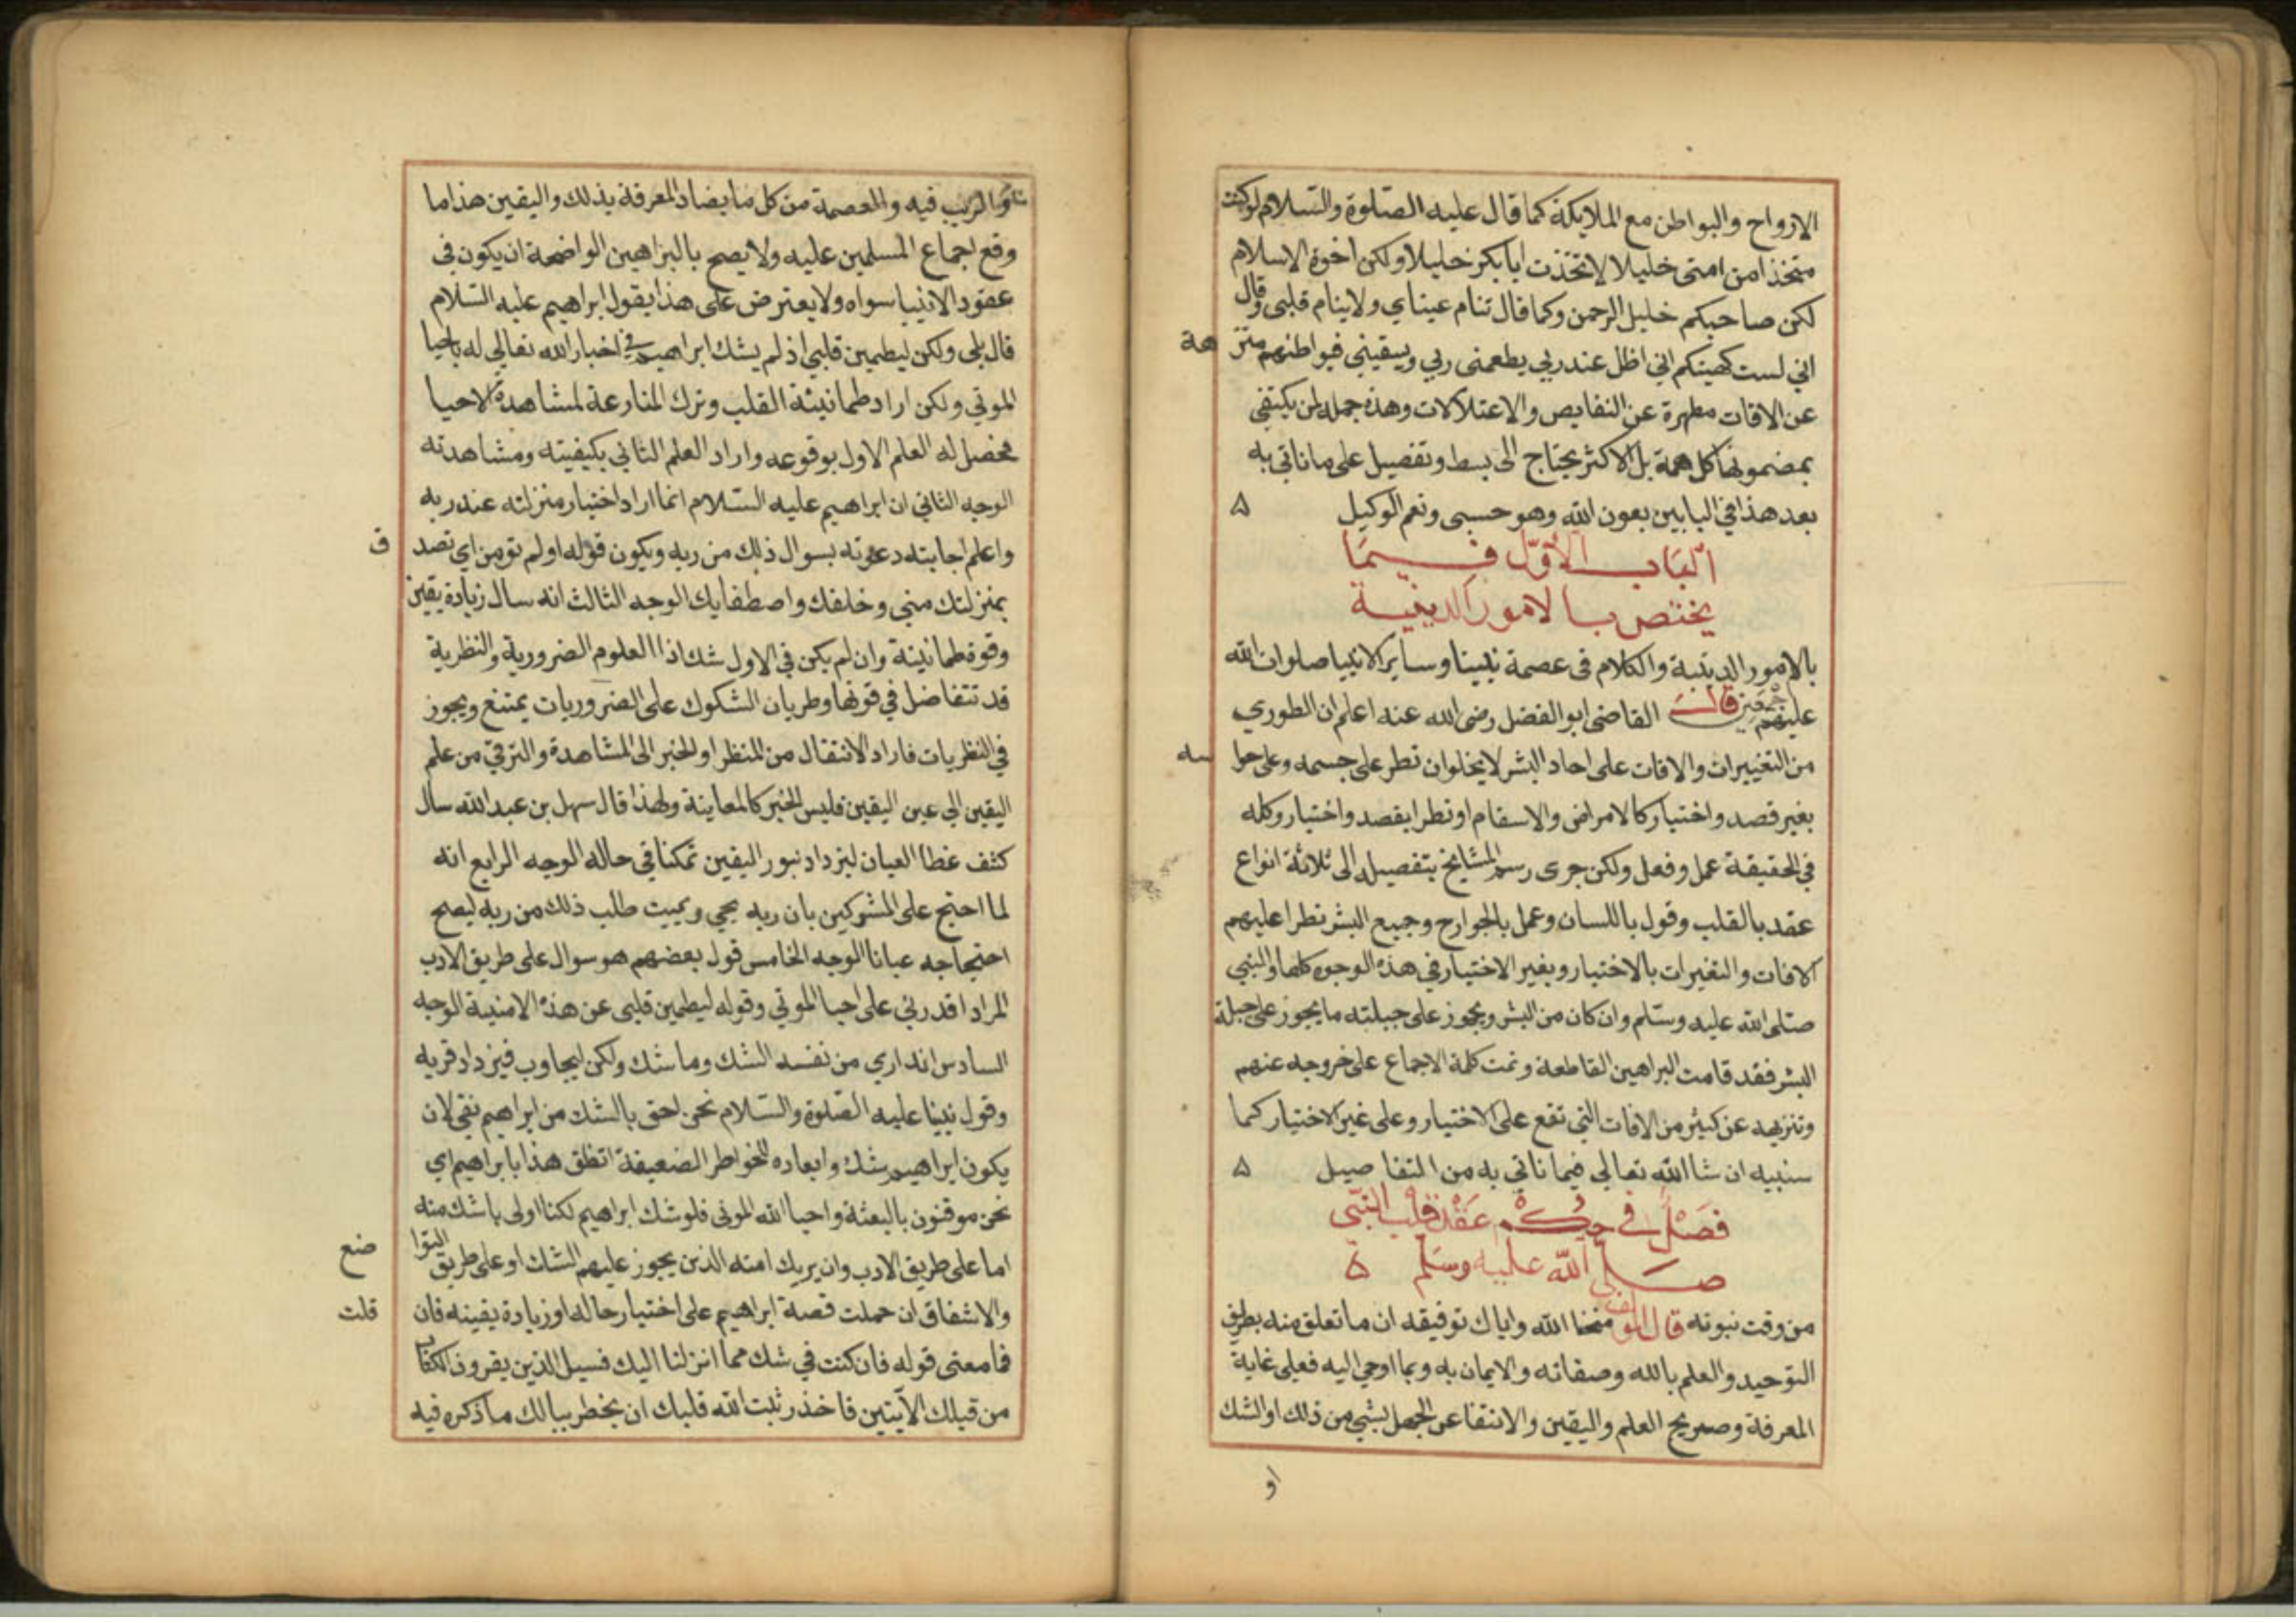 الارواح والبواطن مع الملايكة كما قال عليه الصلوة والسلام لوكنت
متخذا من امتى خليلا لاتخذت ابابكر خليلا ولكن اخوة الاسلام
لكن صاحبكم خليل الرحمن وكما قال تنام عيناي ولاينام قلبى وقال
اني لست كهيئتكم اني اظل عند ربي يطعمنى ربي ويسقيني فبواطنهم منزهة
عن الافات مطهرة عن النقايص والاعتلالات وهذه جملة لن يكتفي
بمضمونها كل همة بل الاكثر يحتاج الى بسط وتفصيل على ماناتي به
بعد هذا في البابين بعون الله وهو حسبي ونعم الوكيل ۵
الباب الاول فيما
يختص بالامور الدينية
بالامور الدينية والكلام فى عصمة نبينا وساير الانبيا صلوات الله
عليهم اجمعين قال القاضى ابوالفضل رضى الله عنه اعلم ان الطوري
من التغييرات والافات على احاد البشر لايخلوان تطر على جسمه وعلى حواسه
بغير قصد واختيار كالامراض والاسقام اوتطرا بقصد واختيار وكله
في الحقيقة عمل وفعل ولكن جرى رسم المشايخ بتفصيله الى ثلاثة انواع
عقد بالقلب وقول باللسان وعمل بالجوارح وجميع البشر تطرا عليهم
الافات والتغيرات بالاختيار وبغير الاختيار في هذه الوجوه كلها والنبي
صلى الله عليه وسلم وان كان من البشر ويجوز على جبلته مايجوز على جبلة
البشر فقد قامت البراهين القاطعة وتمت كلمة الاجماع على خروجه عنهم
وتنزيهه عن كثير من الافات التي تقع على الاختيار وعلى غير الاختيار كما
سنبيه ان شاالله تعالي فيما ناتي به من التفاصيل ۵
فصل في حكم عقد قلب النبي
صلى الله عليه وسلم ۵
من وقت نبوته قال المولف منحنا الله واياك توفيقه ان ماتعلق منه بطريق
التوحيد والعلم بالله وصفاته والايمان به وبما اوحي اليه فعلى غاية
المعرفة وصريح العلم واليقين والانتفا عن الجهل بشي من ذلك او الشك
او
والريب فيه والعصمة من كل مايضاد المعرفة بذلك واليقين هذا ما
وقع اجماع المسلمين عليه ولايصح بالبراهين الواضحة ان يكون في
عقود الانبيا سواه ولايعترض على هذا بقول ابراهيم عليه السلام
قال بلى ولكن ليطمين قلبي اذ لم يشك ابراهيم في اخبار الله تعالي له باحيا
الموتي ولكن اراد طمانينة القلب وترك المنازعة لمشاهدة الاحيا
فحصل له العلم الاول بوقوعه واراد العلم الثاني بكيفيته ومشاهدته
الوجه الثاني ان ابراهيم عليه السلام انما اراد اختبار منزلته عند ربه
واعلم اجابته دعوته بسوال ذلك من ربه ويكون قوله اولم تومن اي تصدق
بمنزلتك مني وخلقك واصطفايك الوجه الثالث انه سال زيادة يقين
وقوة طمانينة وان لم يكن في الاول شك اذا العلوم الضرورية والنظرية
قد تتفاضل في قوتها وطريان الشكوك على الضروريات يمتنع ويجوز
في النظريات فاراد الانتقال من المنظر او الخبر الى المشاهدة والترقي من علم
اليقين الي عين اليقين فليس الخبر كالمعاينة ولهذا قال سهل بن عبدالله سال
كشف غطا العيان ليزداد بنور اليقين تمكنا في حاله الوجه الرابع انه
لما احتج على المشركين بان ربه يحي ويميت طلب ذلك من ربه ليصح
احتجاجه عيانا الوجه الخامس قول بعضهم هو سوال على طريق الادب
المراد اقدرني على احيا الموتي وقوله ليطمين قلبى عن هذه الامنية الوجه
السادس انه اري من نفسه الشك وماشك ولكن ليجاوب فيزداد قربه
وقول نبينا عليه الصلوة والسلام نحن احق بالشك من ابراهيم نفي لان
يكون ابراهيم شك وابعاده للخواطر الضعيفة اتظن هذا بابراهيم اي
نحن موقنون بالبعثة واحيا الله الموتى فلوشك ابراهيم لكنا اولى باشك منه
اما على طريق الادب وان يريك امته الذين يجوز عليهم الشك او على طريق التواضع
والاشفاق ان حملت قصة ابراهيم على اختبار حاله اوزيادة يقينه فان قلت
فمامعنى قوله فان كنت في شك مما انزلنا اليك فسيل الذين يقرون الكتاب
من قبلك الآيتين فاحذر ثبت الله قلبك ان يخطر ببالك ماذكره فيه